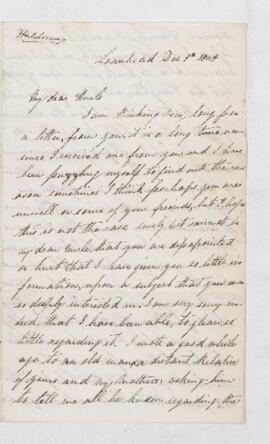 Loanhead Dec 1st
My dear Uncle
I am thinking very long for
a letter from you. it is a long time now
since I received one from you and I have
been puzzling myself to find out the rea
son sometimes I think perhaps you are
unwell or some of your friends, but I hope
this is not the case surely it cannot be
my dear Uncle that you are disappointed
or hurt that I have given you so little in
formation upon a subject that you are
so deeply interested in. I am very sorry in
deed, that I have been able to glean so
little regarding it. I wrote a good while
ago to an old man a distant Relative
of yours and my Mothers asking him
to tell me all he knew regarding the